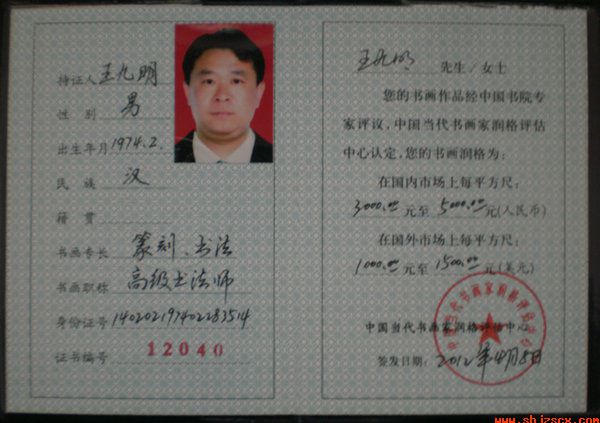 持证人 王九明
性 别 男
出生年月 1974.2.
民 族 汉
籍 贯
书画专长 篆刻、书法
书画职称 高级书法师
身份证号 140202197402283514
证书编号 12040
王九明 先生/女士
您的书画作品经中国书院专
家评议,中国当代书画家润格评估
中心认定,您的书画润格为:
在国内市场上每平方尺:
3000.00 元至 5000.00 元(人民币)
在国外市场上每平方尺:
1000.00 元至 1500.00 元(美元)
中国当代书画家润格评估中心
签发日期: 2012年4月8日
www.shjzscx.com